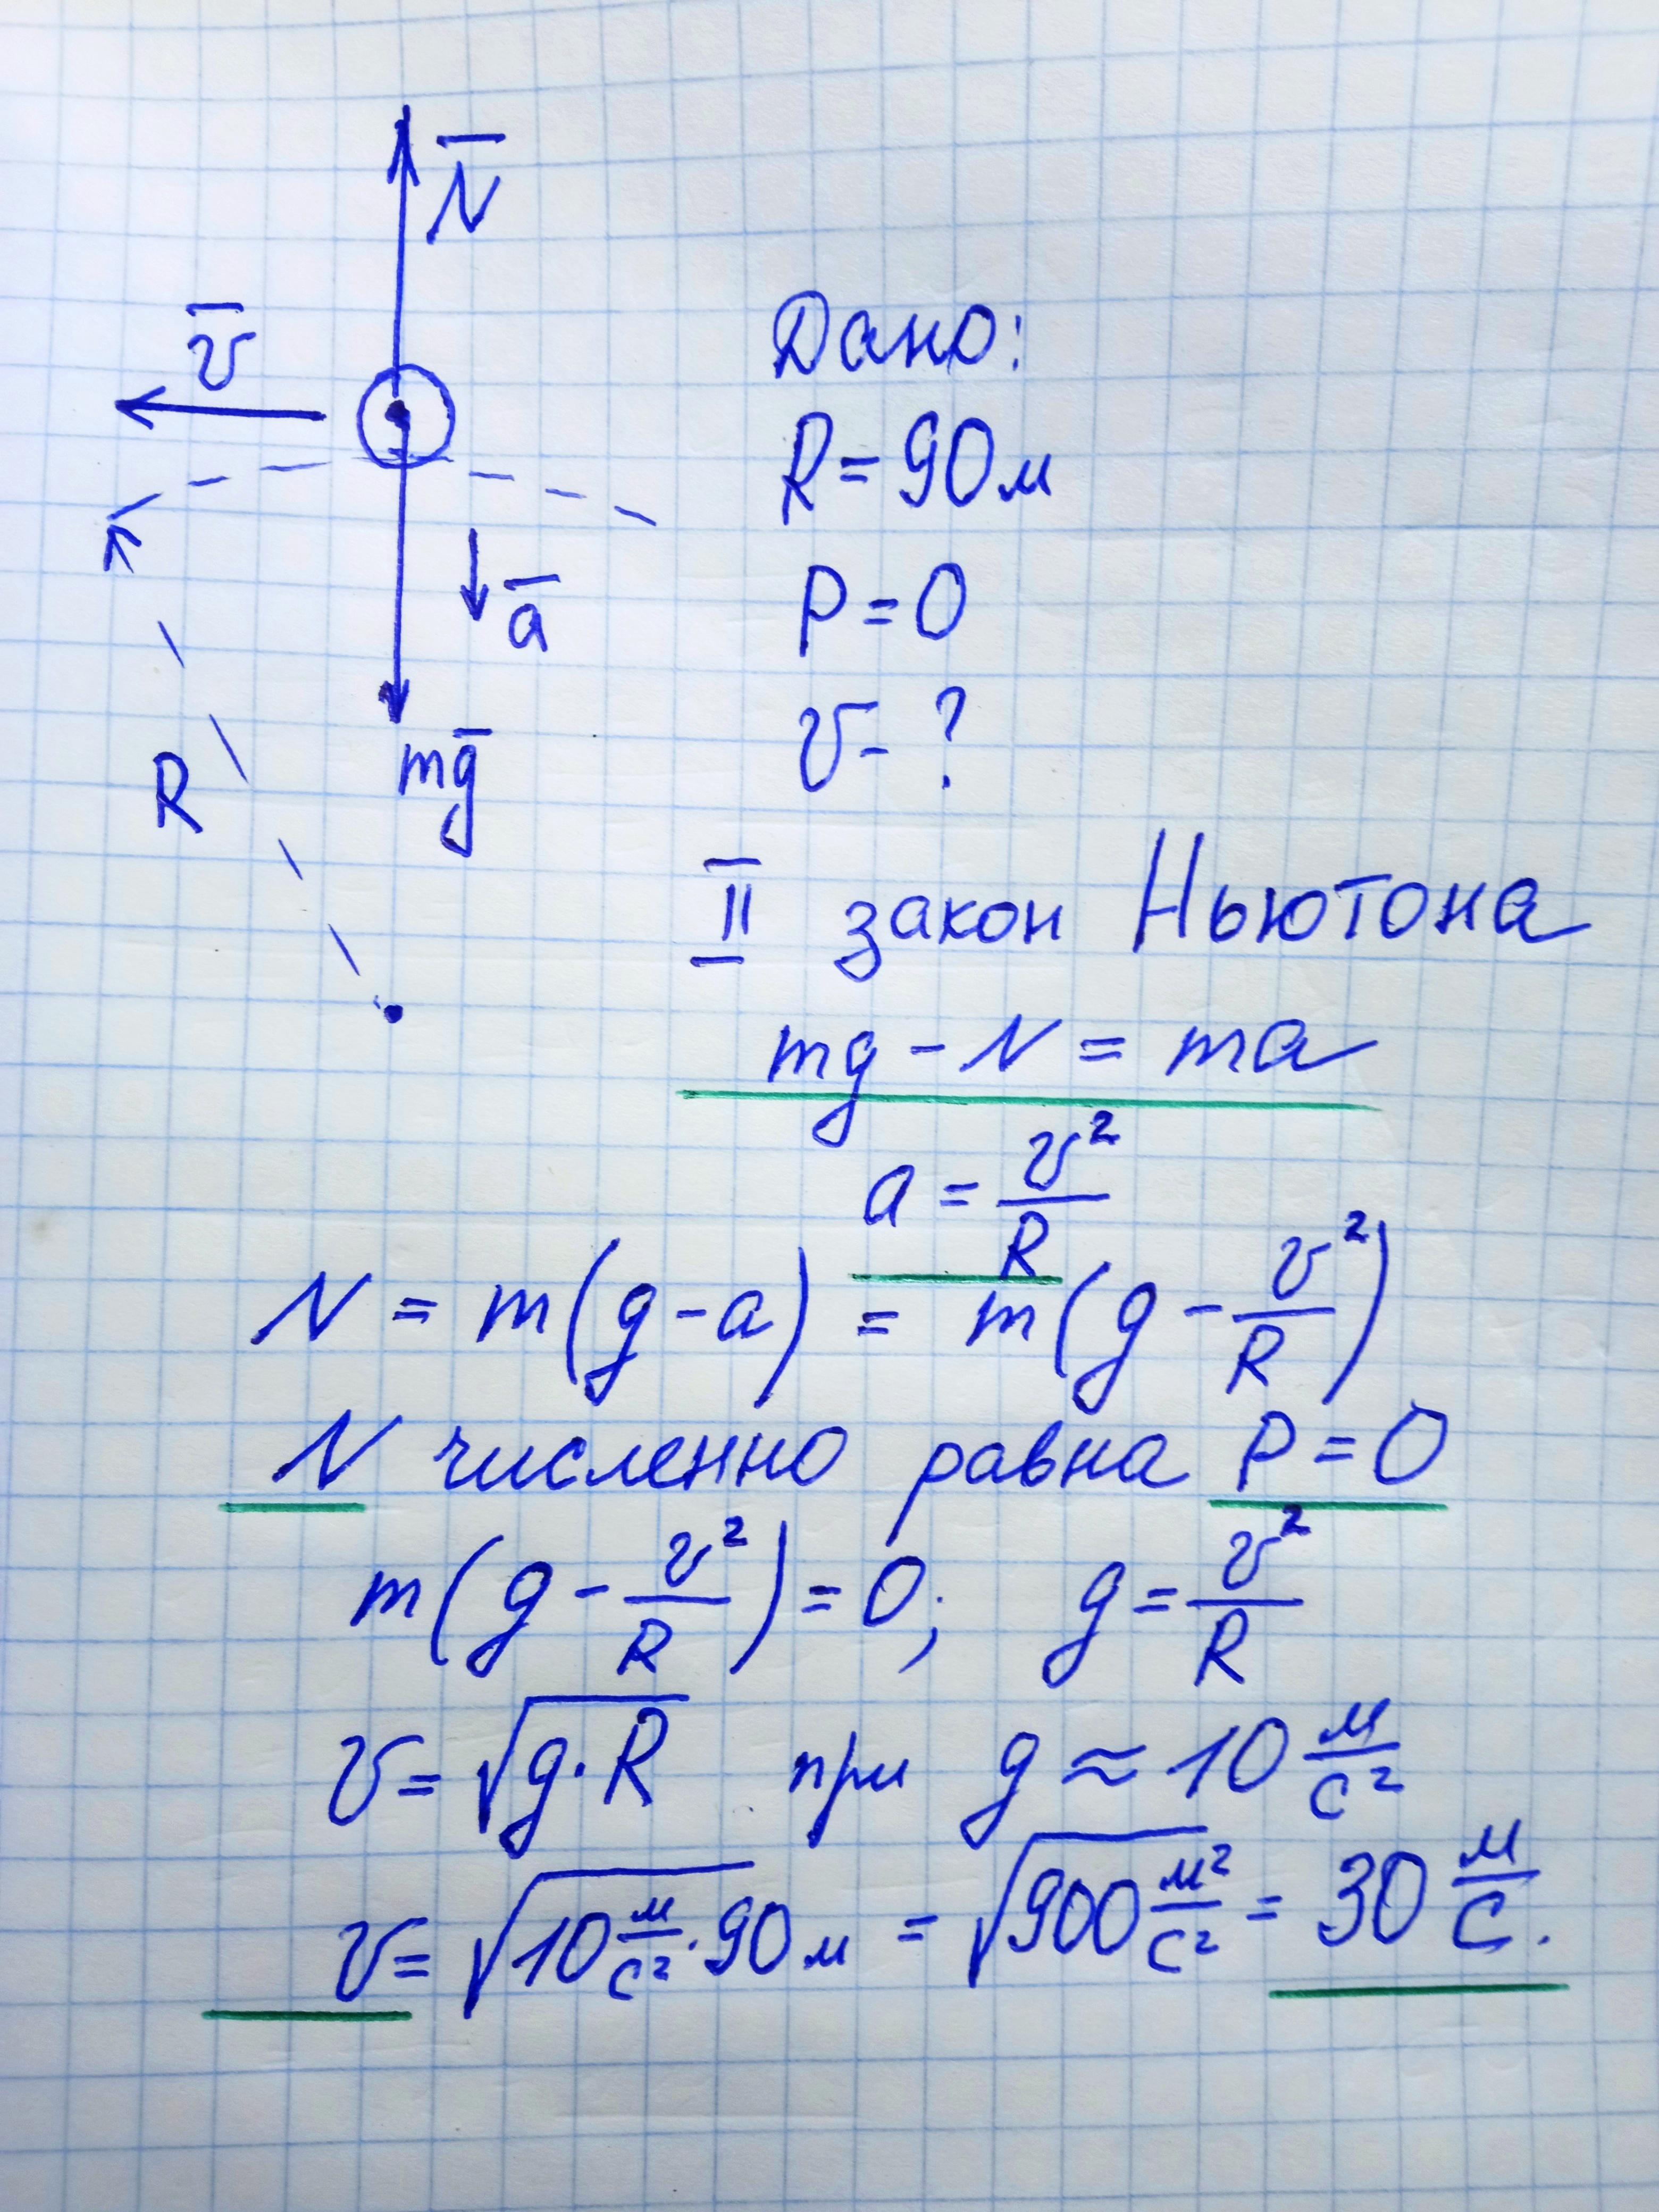 N̅
v̅
Дано:
R = 90 м
P = 0
v - ?
a̅
mg̅
R
II закон Ньютона
mg - N = ma
a = v²/R
N = m(g - a) = m(g - v²/R)
N численно равна P = 0
m(g - v²/R) = 0; g = v²/R
v = √(g·R) при g ≈ 10 м/с²
v = √(10 м/с² · 90 м) = √(900 м²/с²) = 30 м/с.